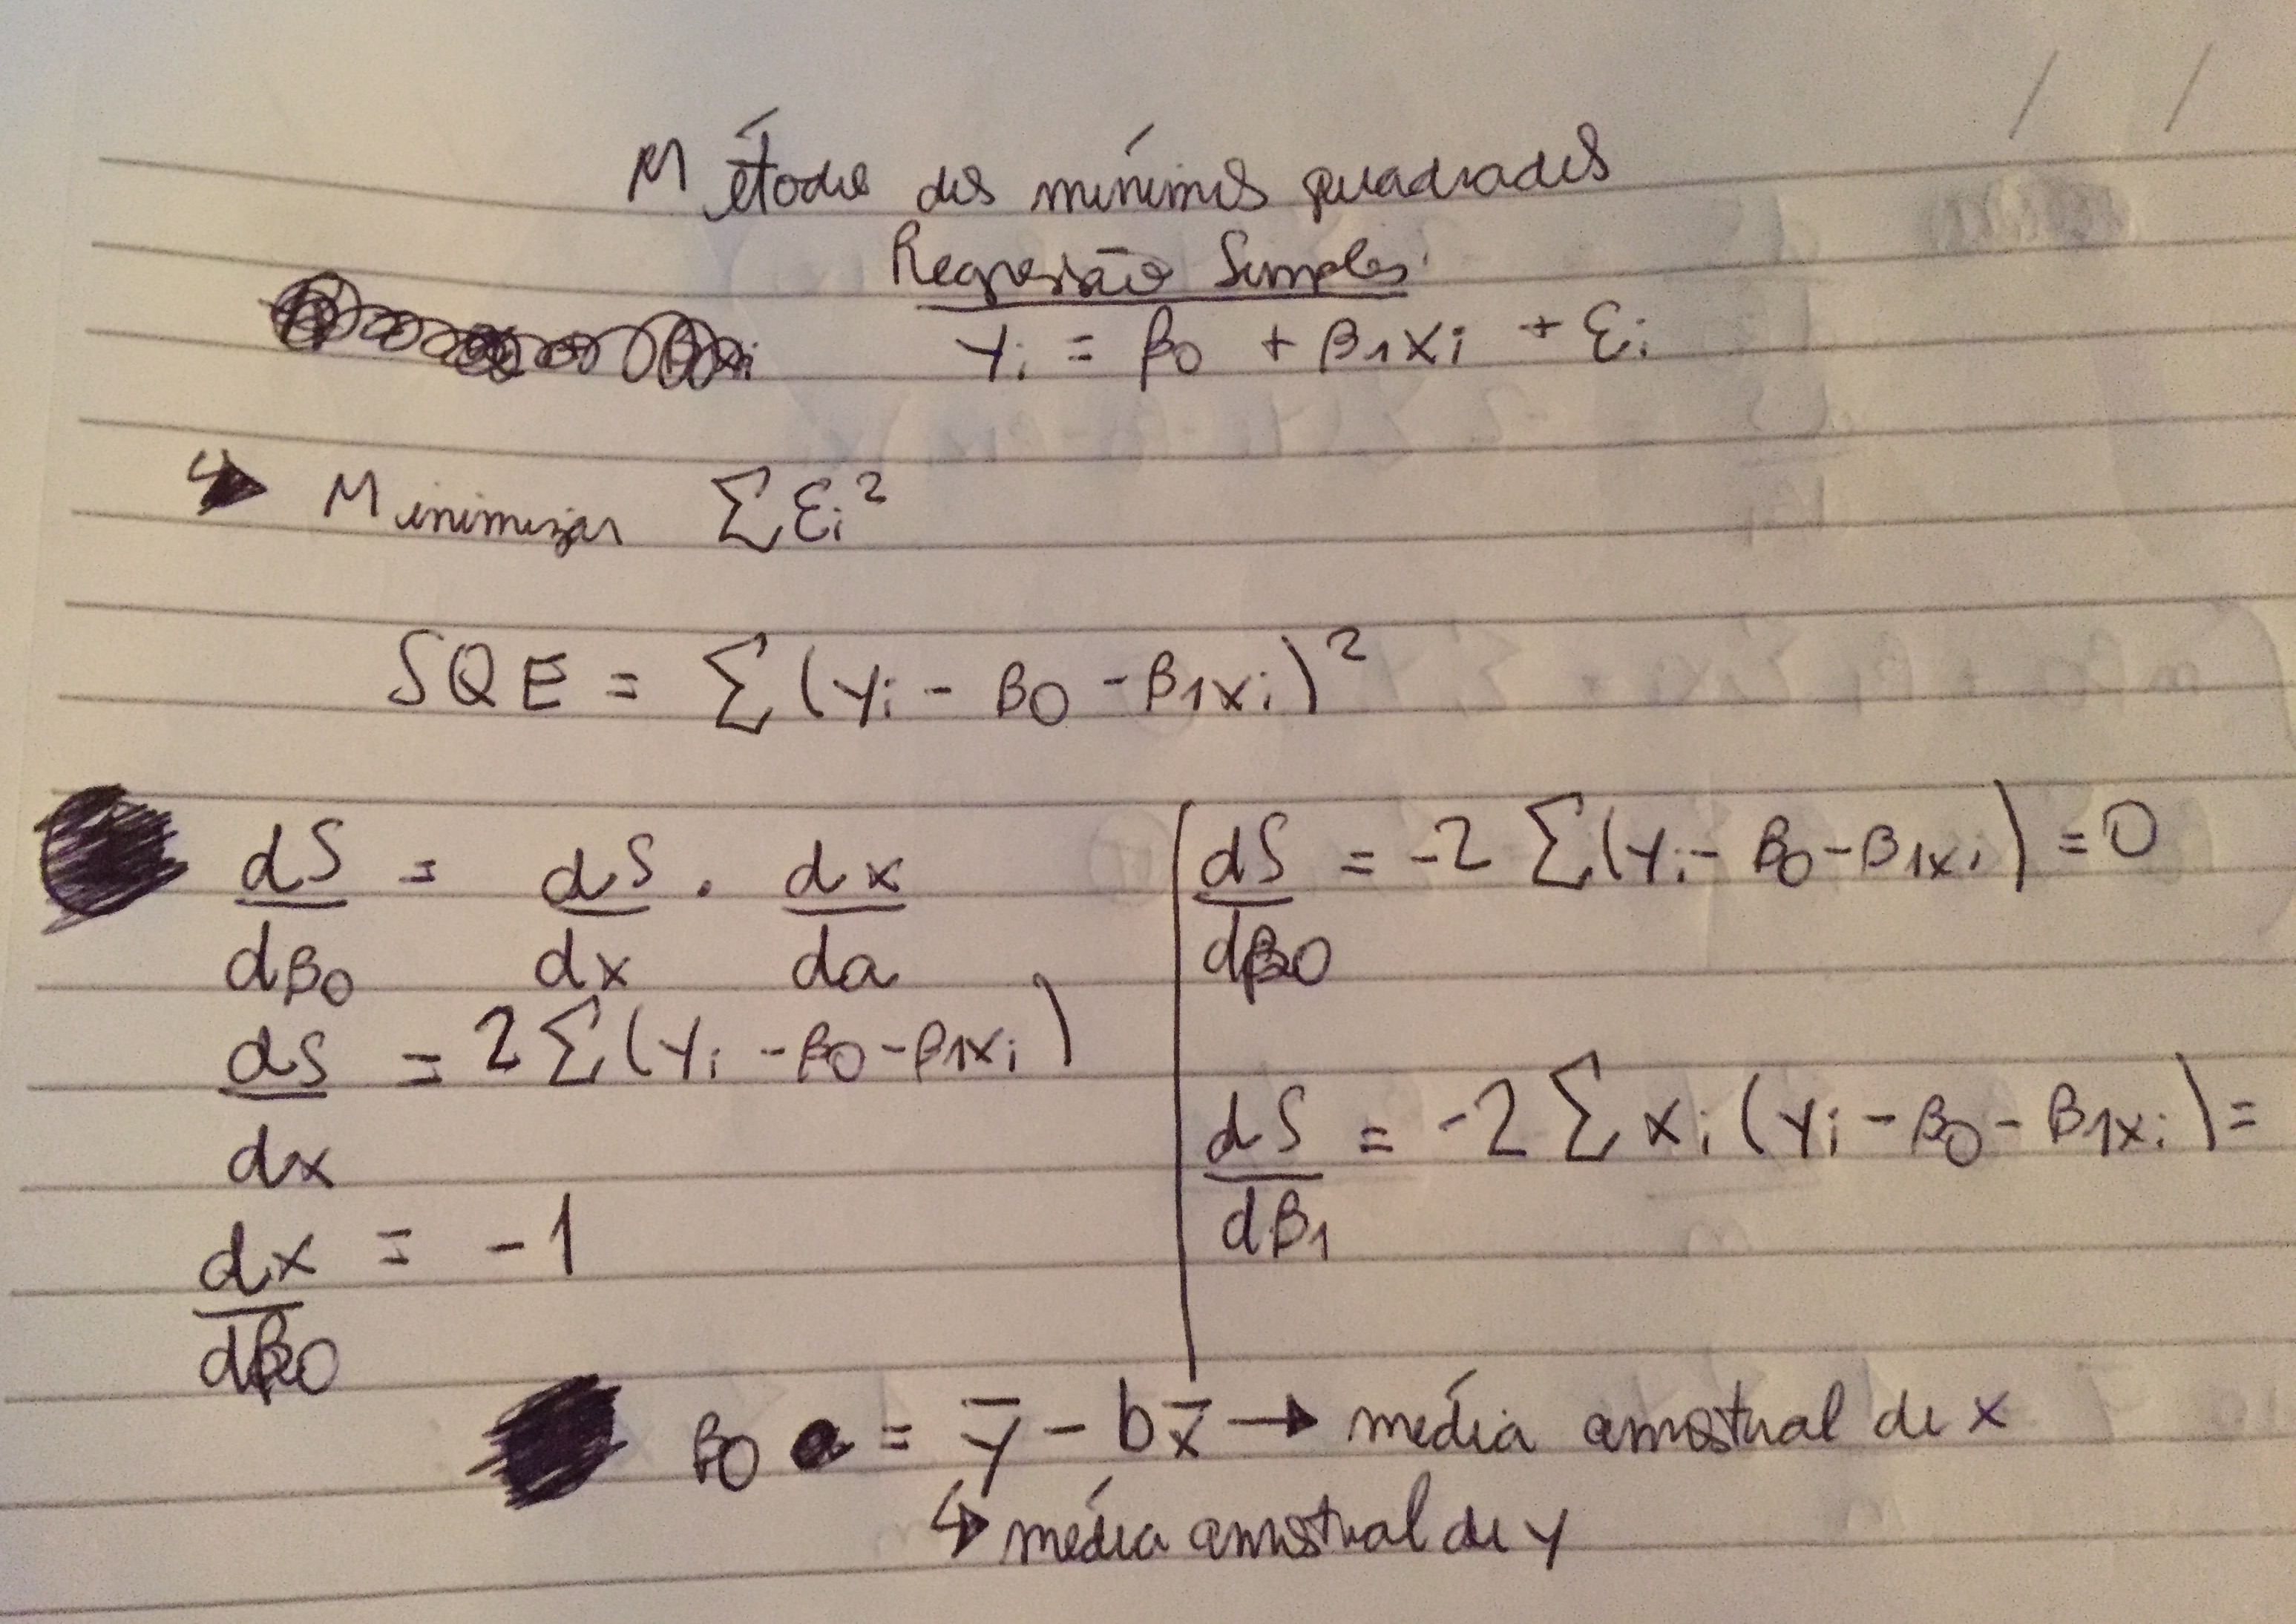 Método dos mínimos quadrados
Regressão Simples
Yi = β0 + β1xi + εi
↳ Minimizar ∑εi²
SQE = ∑(yi - β0 - β1xi)²
dS/dβ0 = dS/dx . dx/da
dS/dx = 2∑(yi - β0 - β1xi)
dx/dβ0 = -1
dS/dβ0 = -2∑(yi - β0 - β1xi) = 0
dS/dβ1 = -2∑xi(yi - β0 - β1xi) =
β0 = y̅ - bx̅ → média amostral de x
↳ média amostral de y